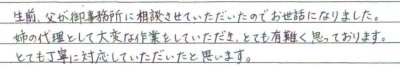 生前、父が御事務所に相談させていただいたのでお世話になりました。
姉の代理として大変な作業をしていただき、とても有難く思っております。
とても丁寧に対応していただいたと思います。